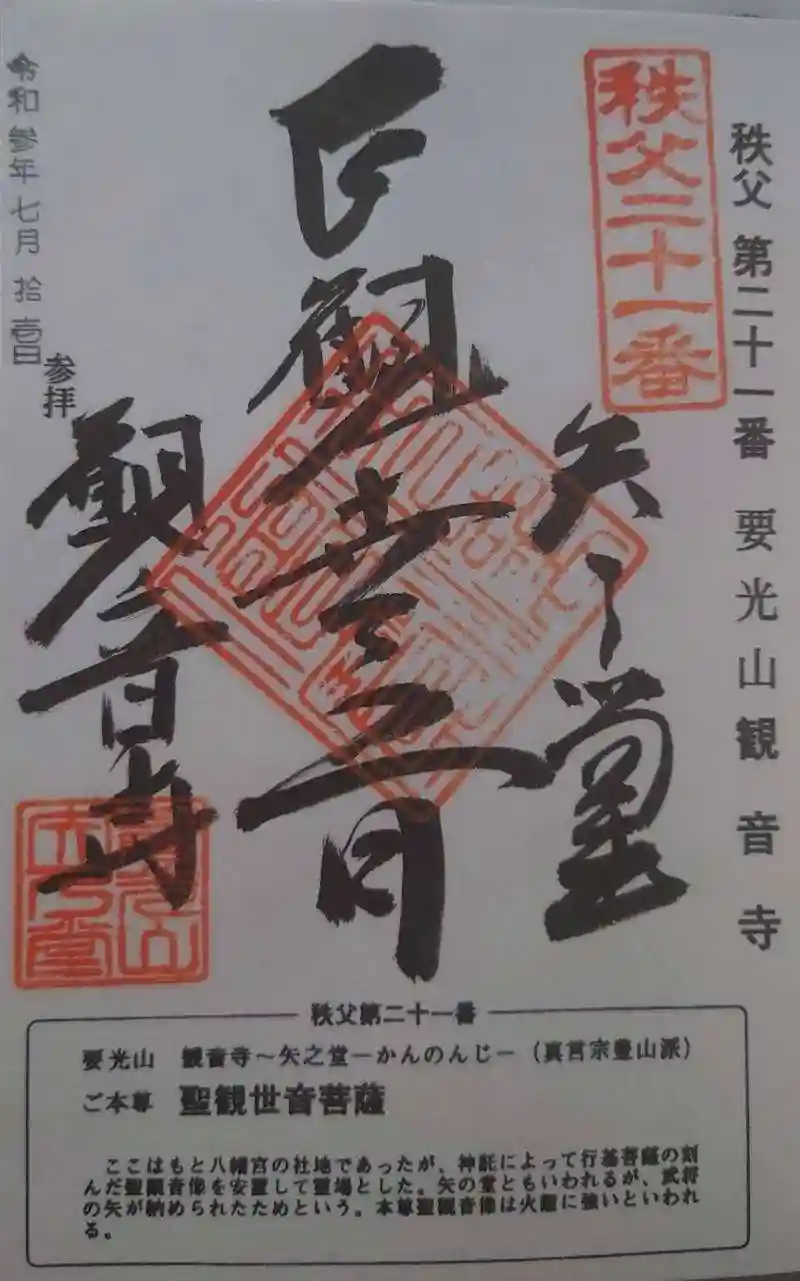 秩父 第二十一番 要光山観音寺
秩父二十一番
矢之堂
正観世音
観音寺
令和参年七月拾壱日
参拝
秩父第二十一番
要光山 観音寺～矢之堂－かんのんじ－（真言宗豊山派）
ご本尊 聖観世音菩薩
ここはもと八幡宮の社地であったが、神託によって行基菩薩の刻
んだ聖観音像を安置して霊場とした。矢の堂ともいわれるが、武将
の矢が納められたためという。本尊聖観音像は火難に強いといわれ
る。